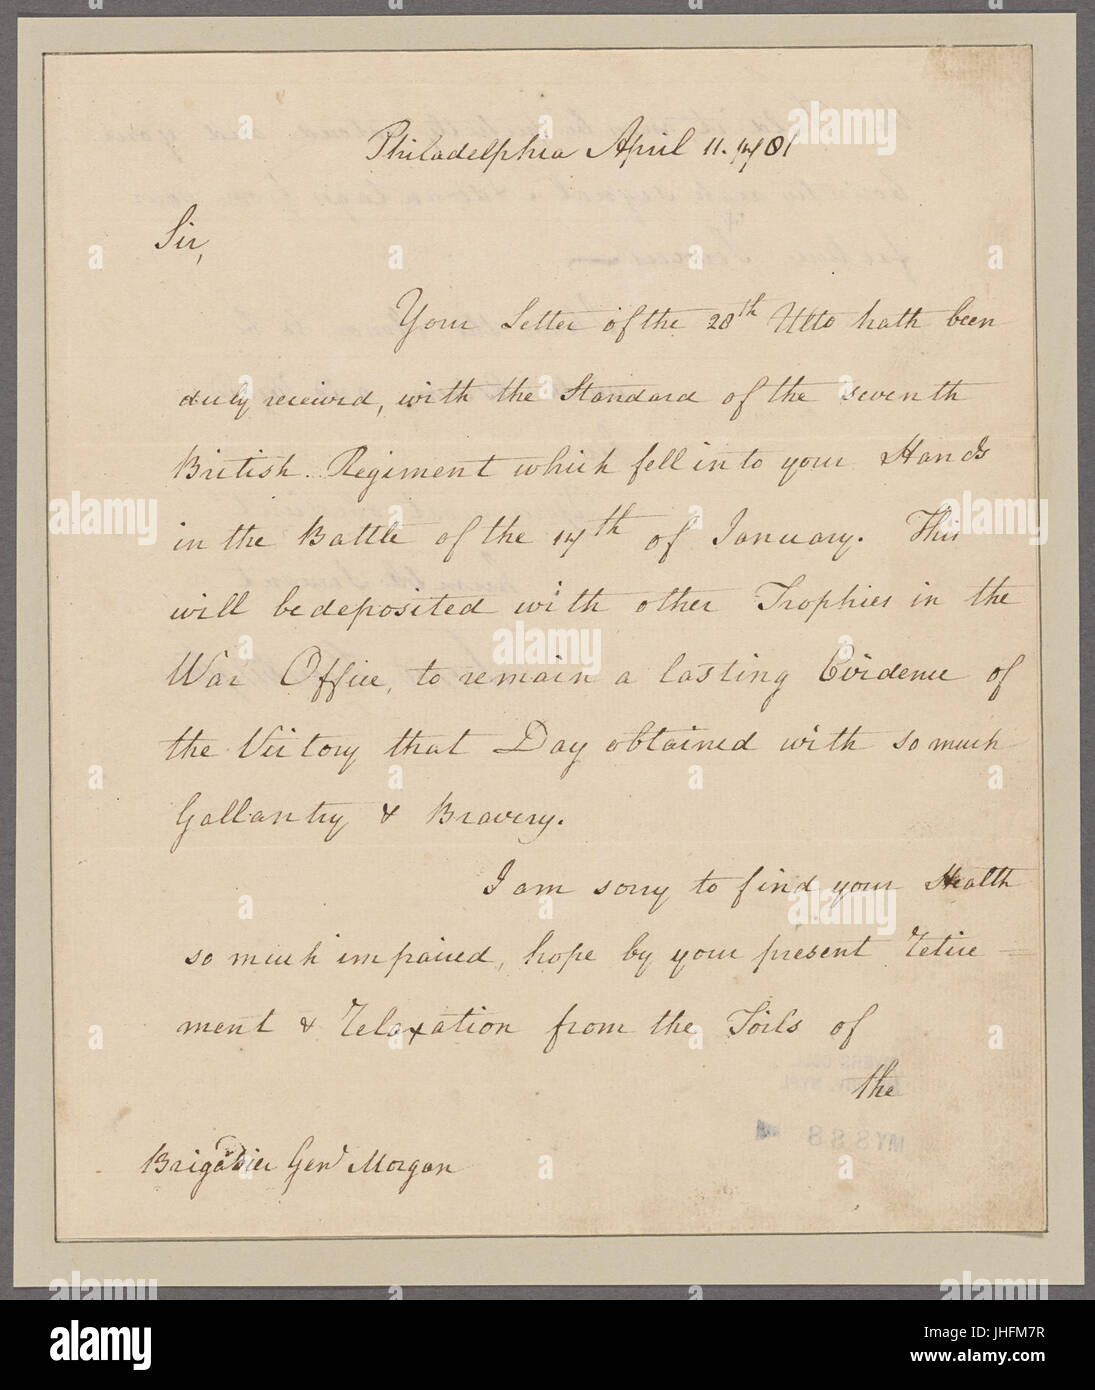 Philadelphia April 11. 1781
Sir,
Your Letter of the 28th Ulto hath been
duly received, with the Standard of the seventh
British Regiment which fell into your Hands
in the Battle of the 17th of January. This
will be deposited with other Trophies in the
War Office, to remain a lasting Evidence of
the Victory that Day obtained with so much
Gallantry & Bravery.
I am sorry to find your Health
so much impaired, hope by your present Retire=
ment & Relaxation from the Toils of
the
Brigadier Genl Morgan
alamy stock photo
alamy
Image ID: JHFM7R
www.alamy.com